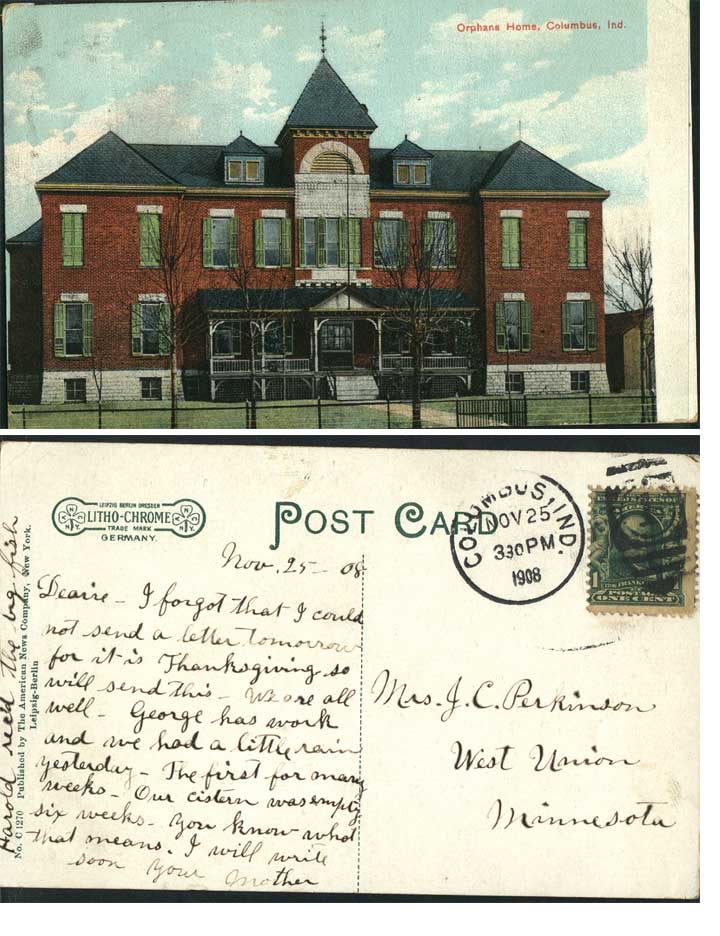 Orphans Home, Columbus, Ind.
LEIPZIG BERLIN DRESDEN
LITHO-CHROME
TRADE MARK
GERMANY.
POST CARD
COLUMBUS, IND.
NOV 25
330 PM
1908
1
POSTAGE
ONE CENT
Nov. 25 - 08
Dearie - I forgot that I could
not send a letter tomorrow
for it is Thanksgiving so
will send this - We are all
well - George has work
and we had a little rain
yesterday - The first for many
weeks - Our cistern was empty
six weeks - you know what
that means. I will write
soon your Mother
Harold recd the big fish
No. C 1270 Published by The American News Company, New York.
Leipzig-Berlin
Mrs. J. C. Perkinson
West Union
Minnesota